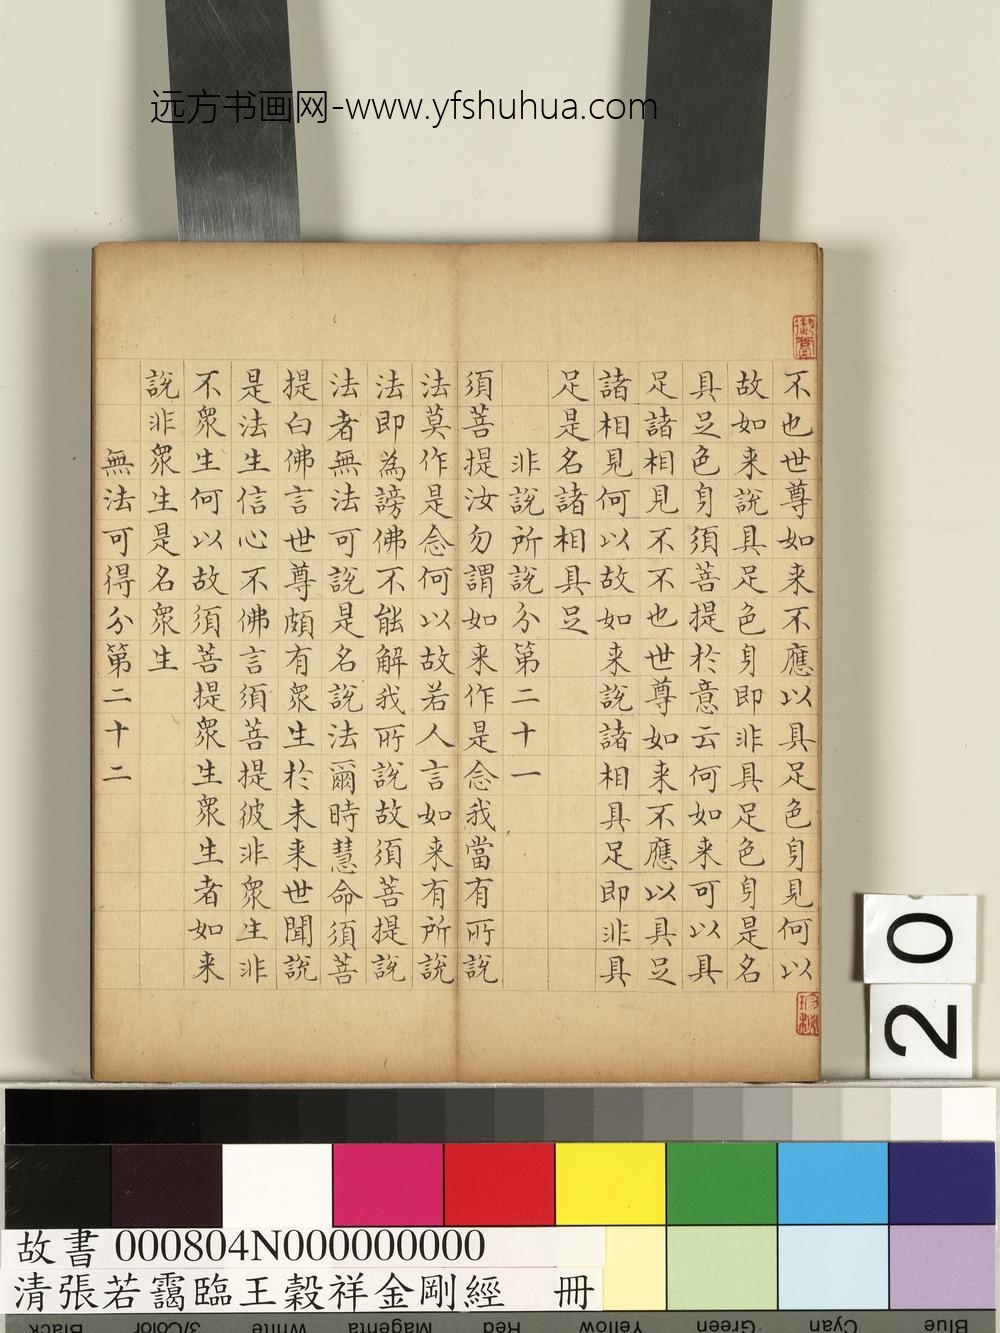 远方书画网-www.yfshuhua.com
不也世尊如来不應以具足色身見何以
故如来說具足色身即非具足色身是名
具足色身須菩提於意云何如来可以具
足諸相見不不也世尊如来不應以具足
諸相見何以故如来說諸相具足即非具
足是名諸相具足
非說所說分第二十一
須菩提汝勿謂如来作是念我當有所說
法莫作是念何以故若人言如来有所說
法即為謗佛不能解我所說故須菩提說
法者無法可說是名說法爾時慧命須菩
提白佛言世尊頗有衆生於未来世聞說
是法生信心不佛言須菩提彼非衆生非
不衆生何以故須菩提衆生衆生者如来
說非衆生是名衆生
無法可得分第二十二
20
故書 000804N000000000
清張若靄臨王穀祥金剛經 冊
Black 3/Color White Magenta Red Yellow Green Cyan Blue